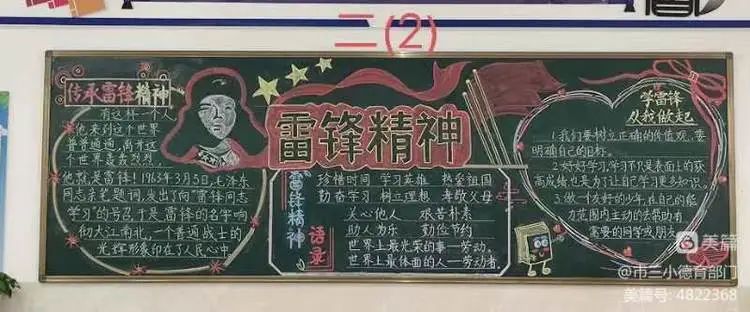 二(2)
传承雷锋精神
有这样一个人
他来到这个世界
普普通通,离开这
个世界轰轰烈烈,
他就是雷锋!1963年3月5日,毛泽东
同志亲笔题词,发出了向"雷锋同志
学习"的号召,于是雷锋的名字响
彻大江南北,一个普通战士的
光辉形象印在了人民心中
雷锋精神
雷锋精神
语录
珍惜时间 学习英雄 热爱祖国
勤奋学习 树立理想 孝敬父母
关心他人 艰苦朴素
助人为乐 勤俭节约
世界上最光荣的事—劳动.
世界上最体面的人—劳动者.
学雷锋
从我做起
1.我们要树立正确的价值观,要
明确自己的目标.
2.好好学习,学习不只是表面上的获
高成绩也是为了让自己学习更多知识.
3.做一个友好的少年,在自己的能
力范围内主动的去帮助有
需要的同学或朋友
美篇
@市三小德育部门
美篇号:4822368